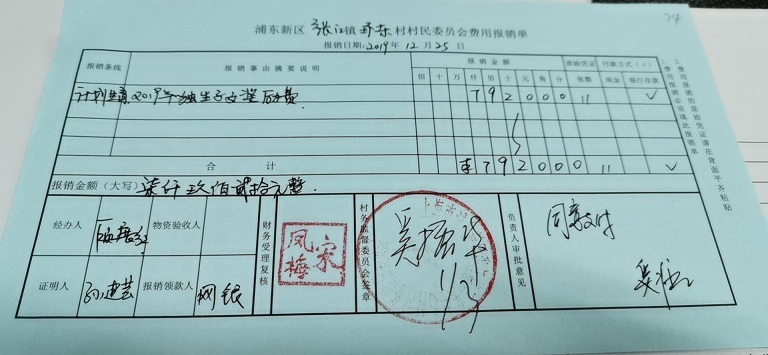 24
浦东新区 张江镇 环东 村村民委员会费用报销单
报销日期:2019年12月25日
报销条线 报销事由摘要说明 报销金额 原始凭证 付款方式(√)
佰 十 万 仟 佰 十 元 角 分 张数 现金 银行存款
计划生育 2019年独生子女奖励费 7 9 2 0 0 0 11 √
合计 ¥ 7 9 2 0 0 0 11 √
报销金额(大写) 柒仟玖佰贰拾元整.
经办人 物资验收人 财务受理复核 凤梅 宋 村务监督委员会签章 吴 负责人审批意见 同意支付
证明人 报销领款人 网银 吴